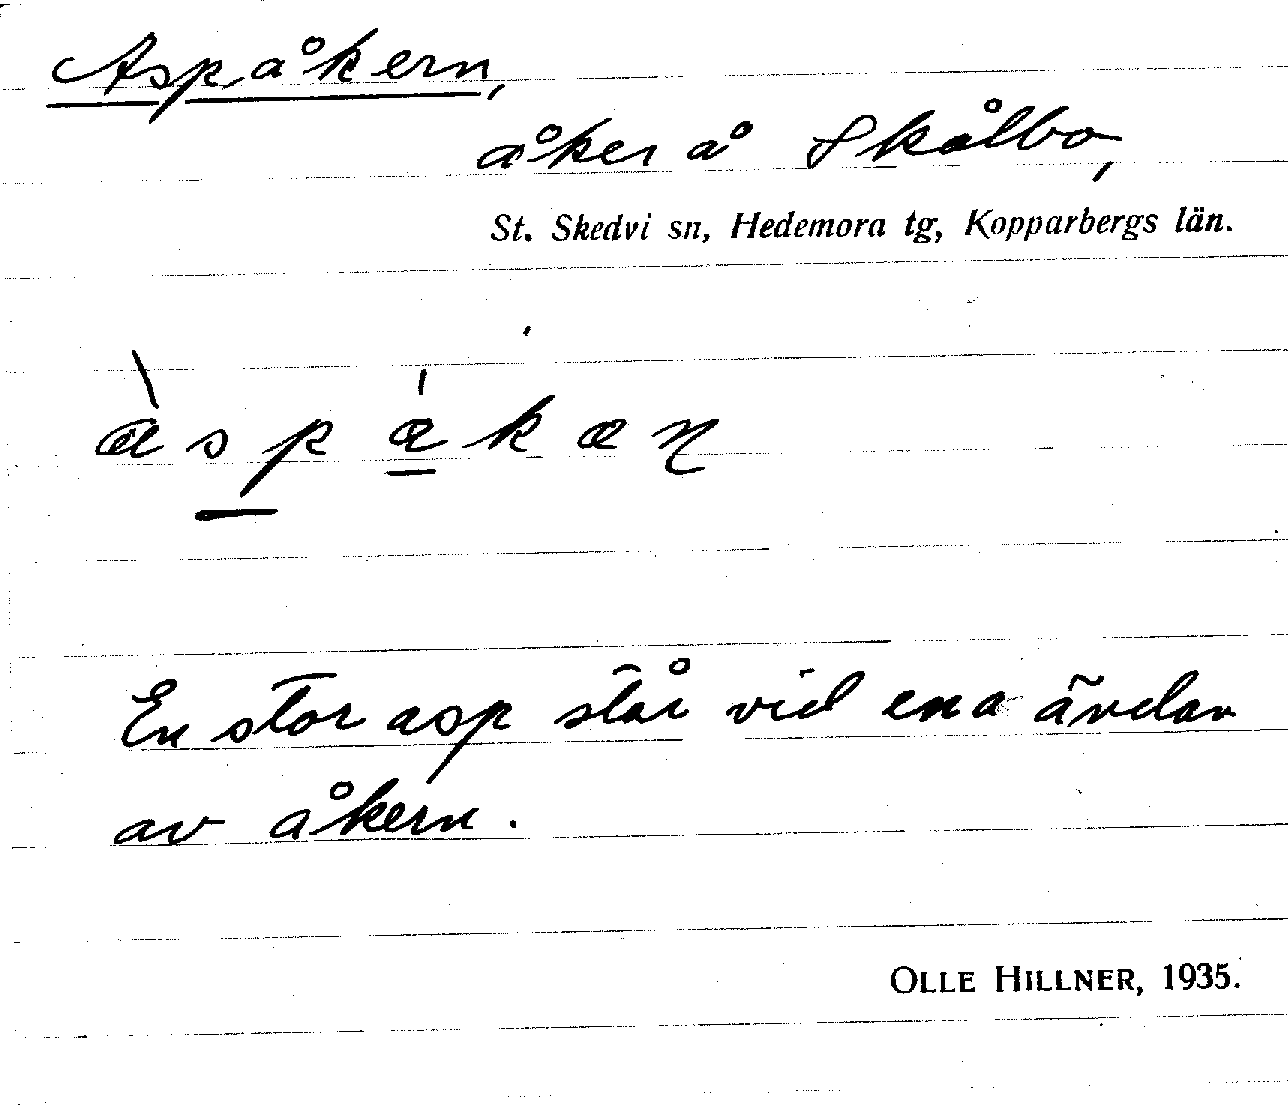 Aspåkern,
åker å Skålbo,
St. Skedvi sn, Hedemora tg, Kopparbergs län.
En stor asp står vid ena ändan
av åkern.
OLLE HILLNER, 1935.